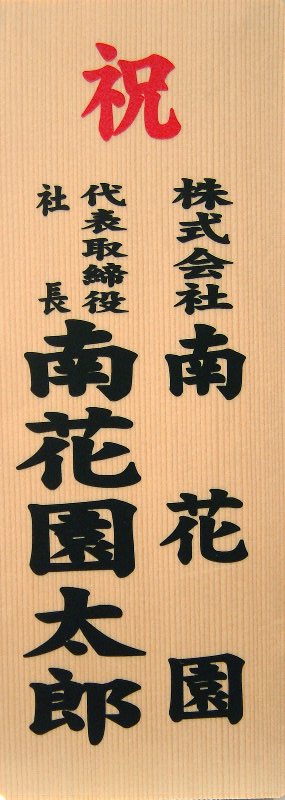 祝
株式会社南花園
代表取締役
社長
南花園太郎